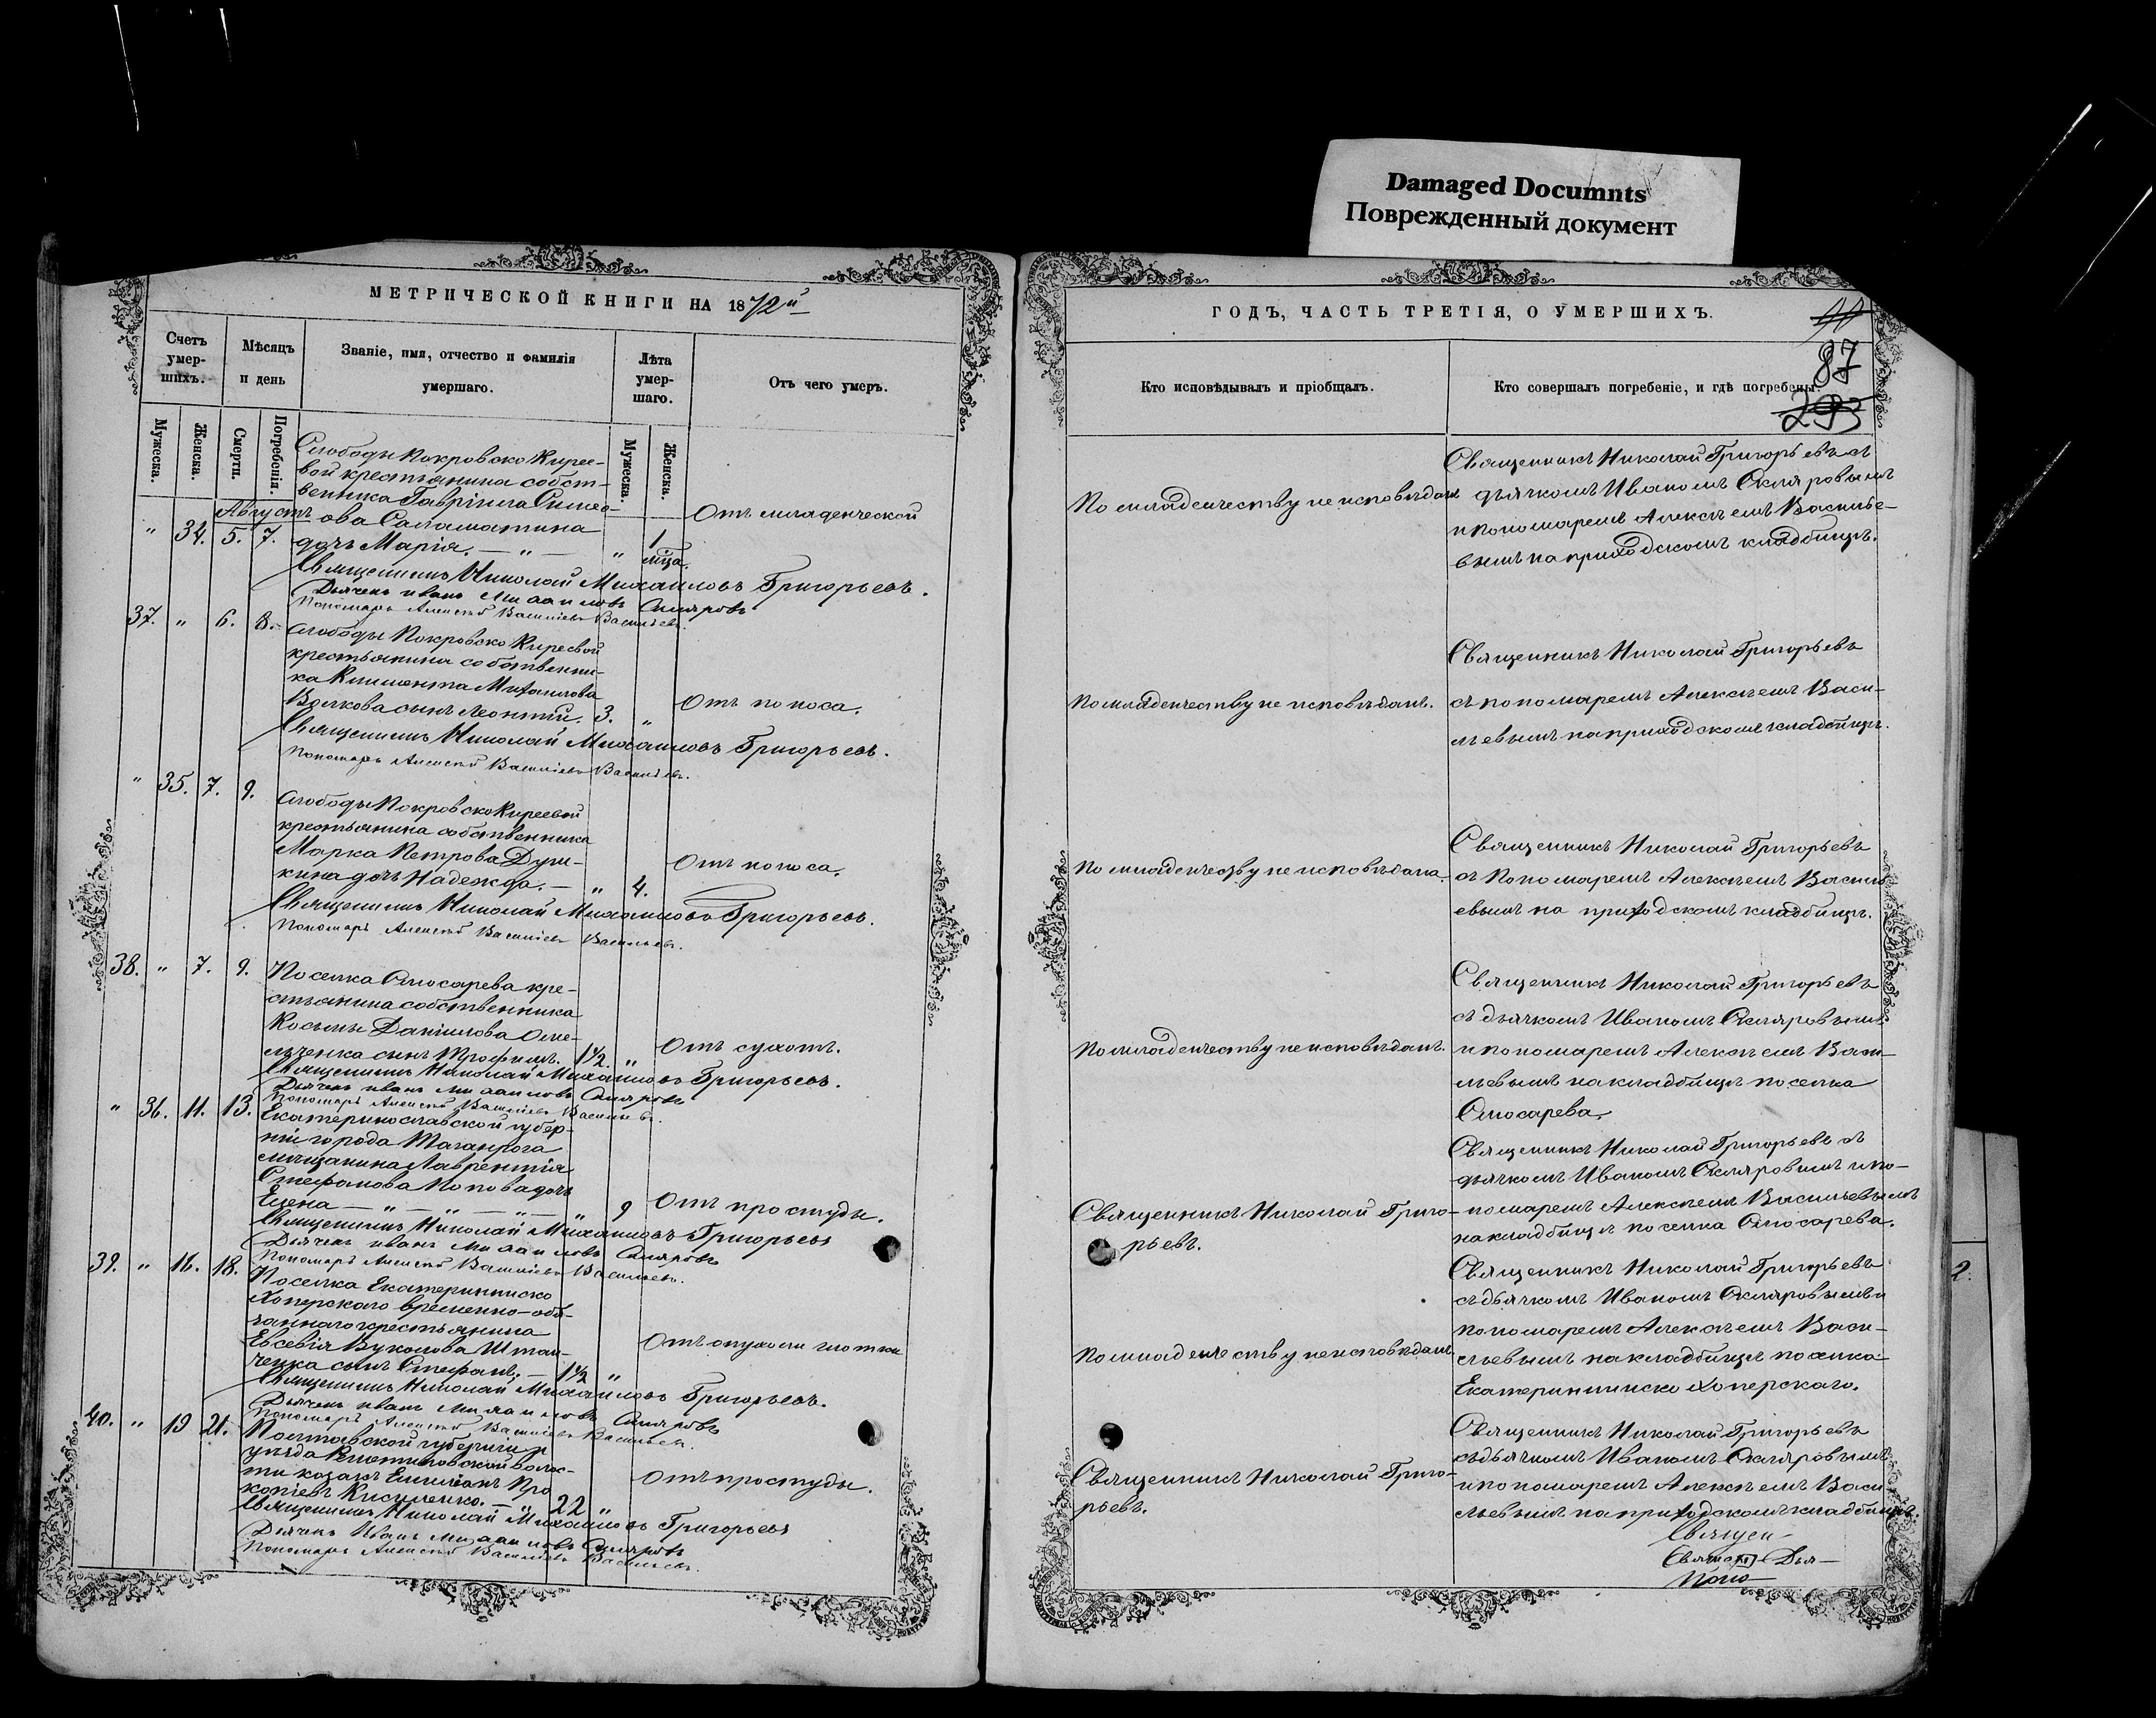 Damaged Documnts
Поврежденный документ
МЕТРИЧЕСКОЙ КНИГИ НА 1872й
Счетъ умер-шихъ.
Мѣсяцъ и день
Званіе, имя, отчество и фамилія умершаго.
Лѣта умер-шаго.
Отъ чего умеръ.
Мужеска.
Женска.
Смерти.
Погребенія.
Мужеска.
Женска.
Августъ
Слободы Покровско Кирее-
вой крестьянина собст-
венника Гавріила Симео-
ова Саламатина
" 34. 5. 7. дочь Марія. — " — " 1 мца. Отъ младенческой
Священникъ Николай Михаиловъ Григорьевъ.
Дьячекъ Иванъ Михаиловъ Скляровъ
Пономарь Алексѣй Василіевъ Васильевъ.
37. " 6. 8. Слободы Покровско Киреевой
крестьянина собственни-
ка Климента Михаилова
Волкова сынъ Леонтій. 3. " Отъ поноса.
Священникъ Николай Михаиловъ Григорьевъ.
Пономарь Алексѣй Василіевъ Васильевъ.
" 35. 7. 9. Слободы Покровско Киреевой
крестьянина собственника
Марка Петрова Душ-
кина дочь Надежда. — " 4. Отъ поноса.
Священникъ Николай Михаиловъ Григорьевъ.
Пономарь Алексѣй Василіевъ Васильевъ.
38. " 7. 9. Поселка Слюсарева кре-
стьянина собственника
Косьмы Даніилова Оме-
льченка сынъ Трофимъ. 1½ " Отъ сухотъ.
Священникъ Николай Михаиловъ Григорьевъ.
Дьячекъ Иванъ Михаиловъ Скляровъ
Пономарь Алексѣй Василіевъ Васильевъ.
" 36. 11. 13. Екатеринославской губер-
ніи города Таганрога
мѣщанина Лаврентія
Стефанова Попова дочь
Елена — " — " — " — " 9 Отъ простуды.
Священникъ Николай Михаиловъ Григорьевъ
Дьячекъ Иванъ Михаиловъ Скляровъ
Пономарь Алексѣй Василіевъ Васильевъ.
39. " 16. 18. Поселка Екатерининско
Хоперскаго временно-обя-
заннаго крестьянина
Евсевія Вуколова Штан-
ченка сынъ Стефанъ. — 1½ " Отъ опухоли глотки
Священникъ Николай Михаиловъ Григорьевъ.
Дьячекъ Иванъ Михаиловъ Скляровъ
Пономарь Алексѣй Василіевъ Васильевъ.
40. " 19 21. Полтавской губерніи и
уѣзда волос-
ти козакъ Емиліанъ Про
копіевъ Кисиленко. — 22 " Отъ простуды.
Священникъ Николай Михаиловъ Григорьевъ
Дьячекъ Иванъ Михаиловъ Скляровъ
Пономарь Алексѣй Василіевъ Васильевъ.
ГОДЪ, ЧАСТЬ ТРЕТІЯ, О УМЕРШИХЪ.
87
293
Кто исповѣдывалъ и пріобщалъ.
Кто совершалъ погребеніе, и гдѣ погребены.
По младенчеству не исповѣдана
Священникъ Николай Григорьевъ съ
дьячкомъ Иваномъ Скляровымъ
и пономаремъ Алексѣемъ Василье-
вымъ на приходскомъ кладбищѣ.
По младенчеству не исповѣданъ.
Священникъ Николай Григорьевъ
съ пономаремъ Алексѣемъ Васи-
льевымъ на приходскомъ кладбищѣ.
По младенчеству не исповѣдана.
Священникъ Николай Григорьевъ
съ Пономаремъ Алексѣемъ Василь-
евымъ на приходскомъ кладбищѣ.
По младенчеству не исповѣданъ.
Священникъ Николай Григорьевъ
съ дьячкомъ Иваномъ Скляровымъ
и пономаремъ Алексѣемъ Васи-
льевымъ на кладбищѣ поселка
Слюсарева.
Священникъ Николай Григо-
рьевъ.
Священникъ Николай Григорьевъ съ
дьячкомъ Иваномъ Скляровымъ и по-
номаремъ Алексѣемъ Васильевымъ
на кладбищѣ поселка Слюсарева.
По младенчеству не исповѣданъ
Священникъ Николай Григорьевъ
съ дьячкомъ Иваномъ Скляровымъ и
пономаремъ Алексѣемъ Васи-
льевымъ на кладбищѣ поселка
Екатерининско Хоперскаго.
Священникъ Николай Григо-
рьевъ.
Священникъ Николай Григорьевъ
съ дьячкомъ Иваномъ Скляровымъ
и пономаремъ Алексѣемъ Васи
льевымъ на приходскомъ кладбищѣ.
Священ-
Дья-
Поно-
2.